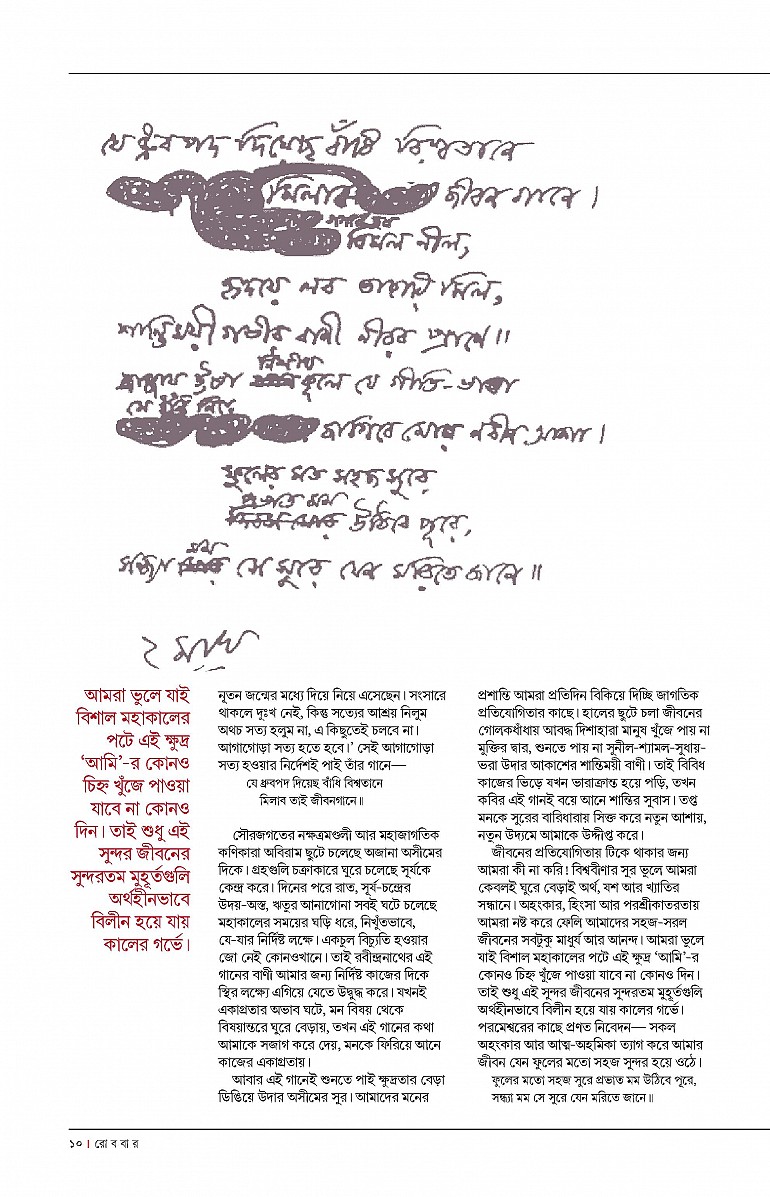 যে ধ্রুবপদ দিয়েছ বাঁধি বিশ্বতানে
মিলাব জীবন গানে।
গগনে তব
বিমল নীল,
হৃদয়ে লব তাহারি মিল,
শান্তিময়ী গভীর বাণী নীরব প্রাণে॥
নিশীথ
বাজায় উষা কূলে যে গীতি-ভাষা
সে ধ্বনি নিয়ে
জাগিবে মোর নবীন আশা।
ফুলের মত সহজ সুরে
প্রভাত মম
উঠিবে পূরে,
মম
সন্ধ্যা সে সুরে যেন মরিতে জানে॥
২ মাঘ
আমরা ভুলে যাই
বিশাল মহাকালের
পটে এই ক্ষুদ্র
‘আমি’-র কোনও
চিহ্ন খুঁজে পাওয়া
যাবে না কোনও
দিন। তাই শুধু এই
সুন্দর জীবনের
সুন্দরতম মুহূর্তগুলি
অর্থহীনভাবে
বিলীন হয়ে যায়
কালের গর্ভে।
নূতন জন্মের মধ্যে দিয়ে নিয়ে এসেছেন। সংসারে
থাকলে দুঃখ নেই, কিন্তু সত্যের আশ্রয় নিলুম
অথচ সত্য হলুম না, এ কিছুতেই চলবে না।
আগাগোড়া সত্য হতে হবে।’ সেই আগাগোড়া
সত্য হওয়ার নির্দেশই পাই তাঁর গানে—
যে ধ্রুবপদ দিয়েছ বাঁধি বিশ্বতানে
মিলাব তাই জীবনগানে॥
সৌরজগতের নক্ষত্রমণ্ডলী আর মহাজাগতিক
কণিকারা অবিরাম ছুটে চলেছে অজানা অসীমের
দিকে। গ্রহগুলি চক্রাকারে ঘুরে চলেছে সূর্যকে
কেন্দ্র করে। দিনের পরে রাত, সূর্য-চন্দ্রের
উদয়-অস্ত, ঋতুর আনাগোনা সবই ঘটে চলেছে
মহাকালের সময়ের ঘড়ি ধরে, নিখুঁতভাবে,
যে-যার নির্দিষ্ট লক্ষে। একচুল বিচ্যুতি হওয়ার
জো নেই কোনওখানে। তাই রবীন্দ্রনাথের এই
গানের বাণী আমার জন্য নির্দিষ্ট কাজের দিকে
স্থির লক্ষ্যে এগিয়ে যেতে উদ্বুদ্ধ করে। যখনই
একাগ্রতার অভাব ঘটে, মন বিষয় থেকে
বিষয়ান্তরে ঘুরে বেড়ায়, তখন এই গানের কথা
আমাকে সজাগ করে দেয়, মনকে ফিরিয়ে আনে
কাজের একাগ্রতায়।
আবার এই গানেই শুনতে পাই ক্ষুদ্রতার বেড়া
ডিঙিয়ে উদার অসীমের সুর। আমাদের মনের
প্রশান্তি আমরা প্রতিদিন বিকিয়ে দিচ্ছি জাগতিক
প্রতিযোগিতার কাছে। হালের ছুটে চলা জীবনের
গোলকধাঁধায় আবদ্ধ দিশাহারা মানুষ খুঁজে পায় না
মুক্তির দ্বার, শুনতে পায় না সুনীল-শ্যামল-সুধায়-
ভরা উদার আকাশের শান্তিময়ী বাণী। তাই বিবিধ
কাজের ভিড়ে যখন ভারাক্রান্ত হয়ে পড়ি, তখন
কবির এই গানই বয়ে আনে শান্তির সুবাস। তপ্ত
মনকে সুরের বারিধারায় সিক্ত করে নতুন আশায়,
নতুন উদ্যমে আমাকে উদ্দীপ্ত করে।
জীবনের প্রতিযোগিতায় টিকে থাকার জন্য
আমরা কী না করি! বিশ্ববীণার সুর ভুলে আমরা
কেবলই ঘুরে বেড়াই অর্থ, যশ আর খ্যাতির
সন্ধানে। অহংকার, হিংসা আর পরশ্রীকাতরতায়
আমরা নষ্ট করে ফেলি আমাদের সহজ-সরল
জীবনের সবটুকু মাধুর্য আর আনন্দ। আমরা ভুলে
যাই বিশাল মহাকালের পটে এই ক্ষুদ্র ‘আমি’-র
কোনও চিহ্ন খুঁজে পাওয়া যাবে না কোনও দিন।
তাই শুধু এই সুন্দর জীবনের সুন্দরতম মুহূর্তগুলি
অর্থহীনভাবে বিলীন হয়ে যায় কালের গর্ভে।
পরমেশ্বরের কাছে প্রণত নিবেদন— সকল
অহংকার আর আত্ম-অহমিকা ত্যাগ করে আমার
জীবন যেন ফুলের মতো সহজ সুন্দর হয়ে ওঠে।
ফুলের মতো সহজ সুরে প্রভাত মম উঠিবে পূরে,
সন্ধ্যা মম সে সুরে যেন মরিতে জানে॥
১০ । রো ব বা র